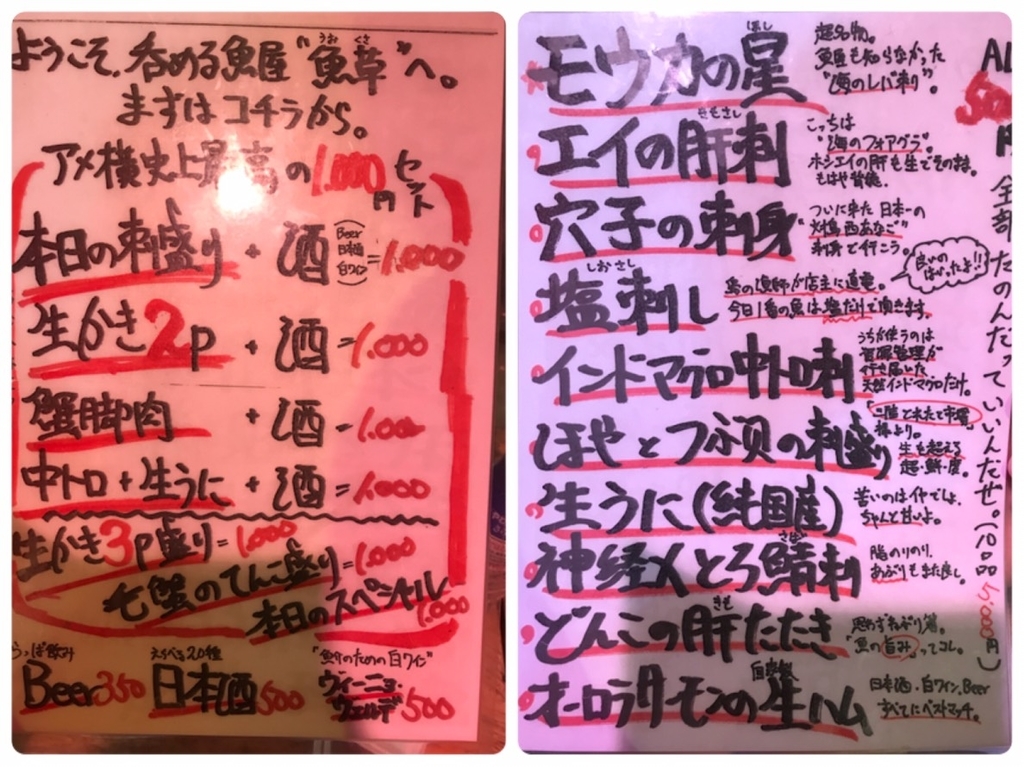 ようこそ、呑める魚屋"魚草"へ。
うお くさ
まずはコチラから。
アメ横史上最高の1.000円セット
本日の刺盛り + 酒 (Beer 日本酒 白ワイン) = 1.000
生かき2p + 酒 = 1.000
蟹脚肉 + 酒 = 1.000
中トロ + 生うに + 酒 = 1.000
生かき3p盛り = 1.000
七蟹のてんこ盛り = 1.000
本日のスペシャル 1.000
Beer 350
えらべる20種
日本酒 500
"魚介のための白ワイン"
ヴィーニョ・ヴェルデ 500
モウカの星
ほし
超名物。
魚屋も知らなかった
"海のレバ刺"。
エイの肝刺
きもさし
こっちは
"海のフォアグラ"。
ホシエイの肝も生でそのまま。
もはや背徳。
穴子の刺身
ついに来た 日本一の
対馬西あなご
刺身で行こう。
良いの
はいったよ!!
塩刺し
しおさし
今日1番の魚は塩だけで頂きます。
インドマグロ中トロ刺
うちが使うのは
資源管理が
行き届いた、
天然インドマグロだけ。
ほやとつぶ貝の刺盛り
様より。
生を超える
超・鮮・度。
生うに(純国産)
苦いのは仔でしょ、
ちゃんと甘いよ。
神経〆とろ鯖刺
さば
脂のりのり。
あぶりもまた良し。
どんこの肝たたき
きも
"魚の旨み"ってコレ。
オーロラサーモンの生ハム
自家製
日本酒・白ワイン、Beer
すべてにベストマッチ。
500
全部たのんだっていいんだぜ。(10品5000円)